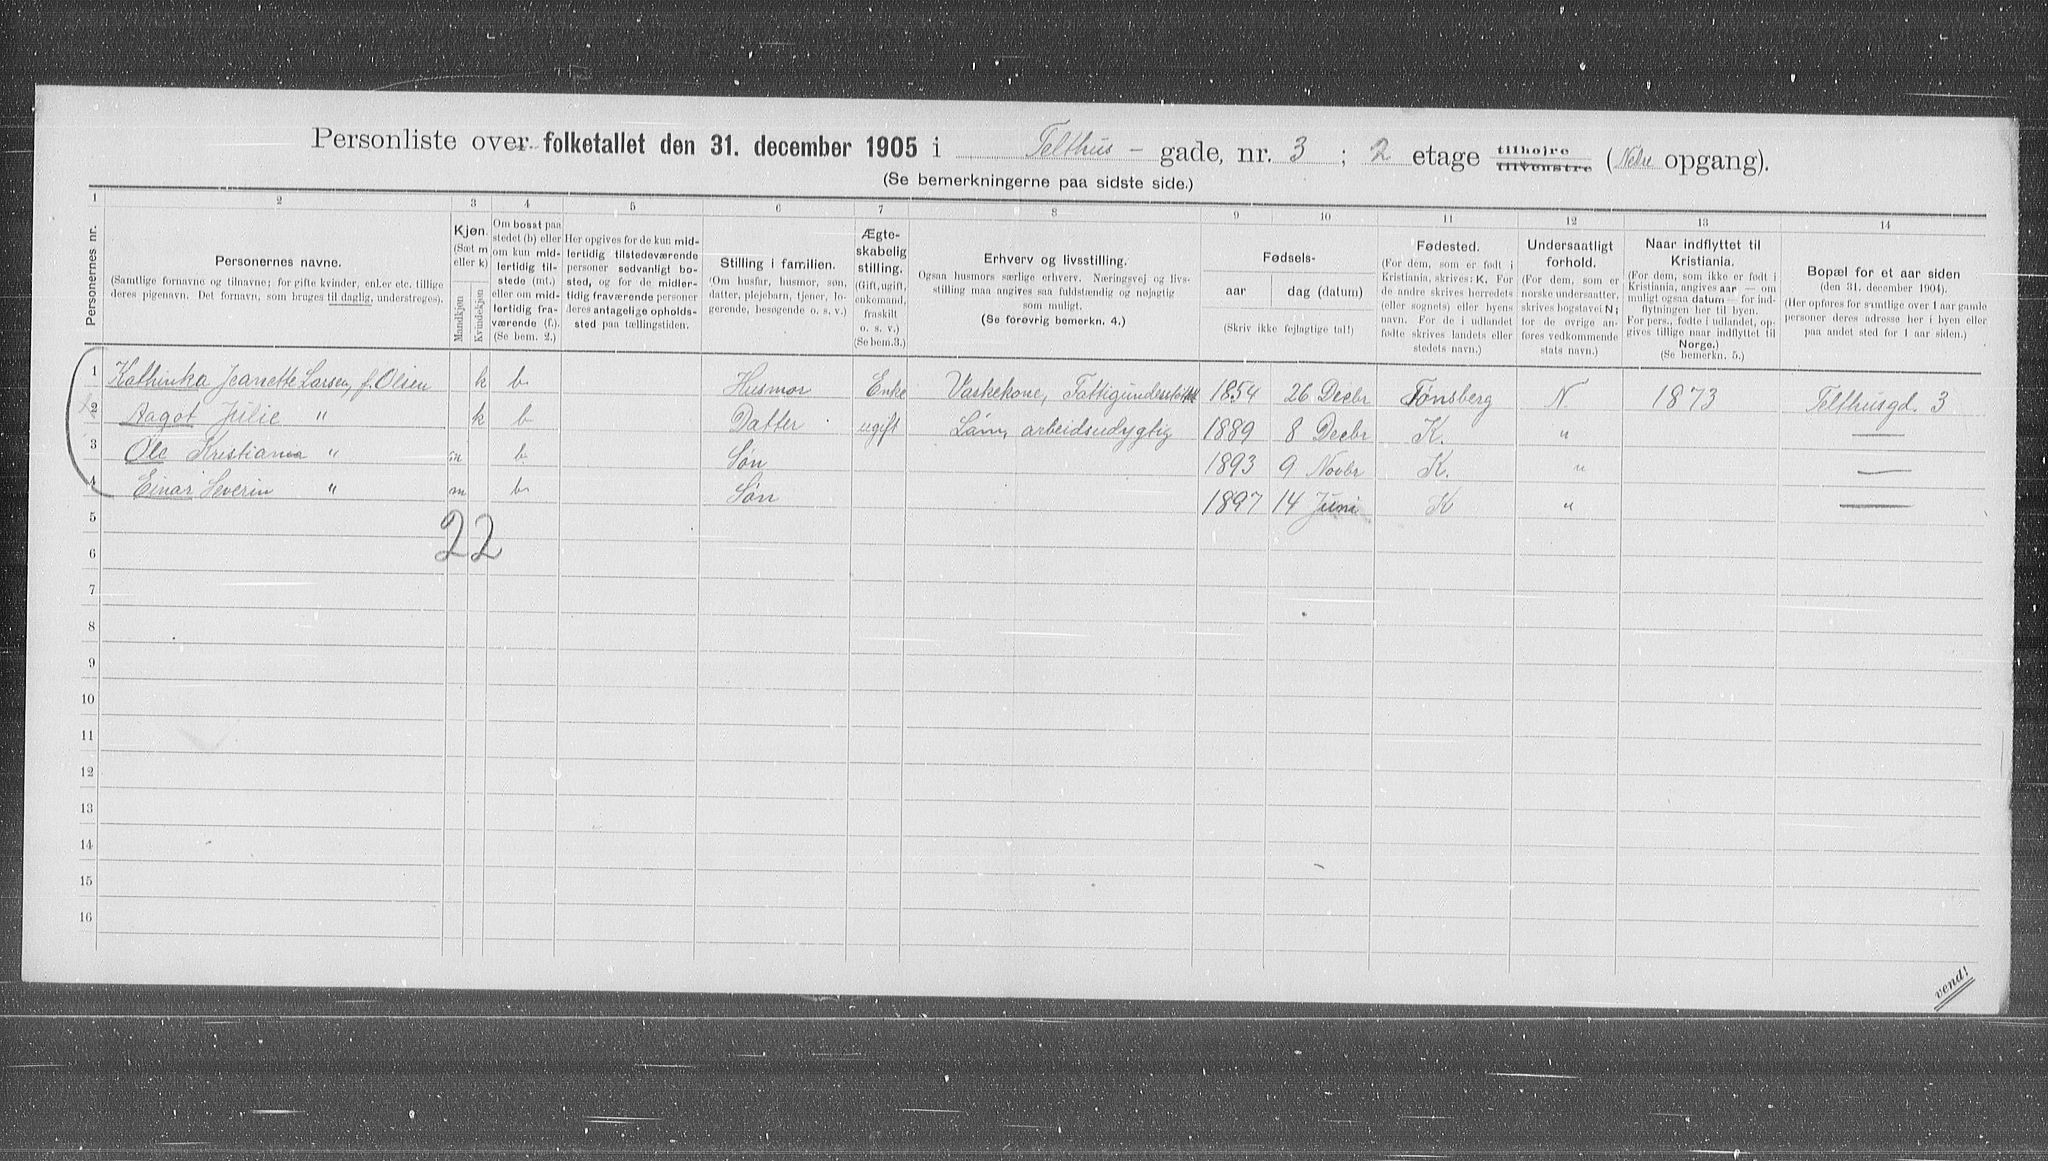 Personliste over folketallet den 31. december 1905 i Telthus - gade, nr. 3 ; 2 etage tilhøjre tilvenstre (Nedre opgang).
(Se bemerkningerne paa sidste side.)
1 2 3 4 5 6 7 8 9 10 11 12 13 14
Personernes nr.
Personernes navne.
(Samtlige fornavne og tilnavne; for gifte kvinder, enker etc. tillige deres pigenavn. Det fornavn, som bruges til daglig, understreges).
Kjøn.
(Sæt m eller k)
Mandkjøn
Kvindekjøn
Om bosat paa stedet (b) eller om kun midlertidig tilstede (mt.) eller om midlertidig fraværende (f.). (Se bem. 2.)
Her opgives for de kun midlertidig tilstedeværende personer sedvanligt bosted, og for de midlertidig fraværende personer deres antagelige opholdssted paa tællingstiden.
Stilling i familien.
(Om husfar, husmor, søn, datter, plejebarn, tjener, logerende, besøgende o. s. v.)
Ægteskabelig stilling.
(Gift, ugift, enkemand, fraskilt o. s. v.) (Se bem.3.)
Erhverv og livsstilling.
Ogsaa husmors særlige erhverv. Næringsvej og livsstilling maa angives saa fuldstændig og nøjagtig som muligt.
(Se forøvrig bemerkn. 4.)
Fødsels-
aar
dag (datum)
(Skriv ikke fejlagtige tal!)
Fødested.
(For dem, som er født i Kristiania, skrives: K. For de andre skrives herredets (eller sognets) eller byens navn. For de i udlandet fødte skrives landets eller stedets navn.)
Undersaatligt forhold.
(For dem, som er norske undersaatter, skrives bogstavet N; for de øvrige anføres vedkommende stats navn.)
Naar indflyttet til Kristiania.
(For dem, som ikke er født i Kristiania, angives aar — om muligt ogsaa datum — for indflytningen her til byen. For pers., fødte i udlandet, opgives tillige naar indflyttet til Norge.)
(Se bemerkn. 5.)
Bopæl for et aar siden
(den 31. december 1904).
(Her opføres for samtlige over 1 aar gamle personer deres adresse her i byen eller paa andet sted for 1 aar siden.)
1 Kathinka Jeanette Larsen, f. Olsen k b Husmor Enke Vaskekone, 1854 26 Decbr Tønsberg N. 1873 Telthusgd. 3
2 Aagot Julie " k b Datter ugift arbeidsudygtig 1889 8 Decbr K. " —
3 Ole Kristian " m b Søn 1893 9 Novbr K. " —
4 Einar Severin " m b Søn 1897 14 Juni K " —
5
22
6
7
8
9
10
11
12
13
14
15
16
vend!